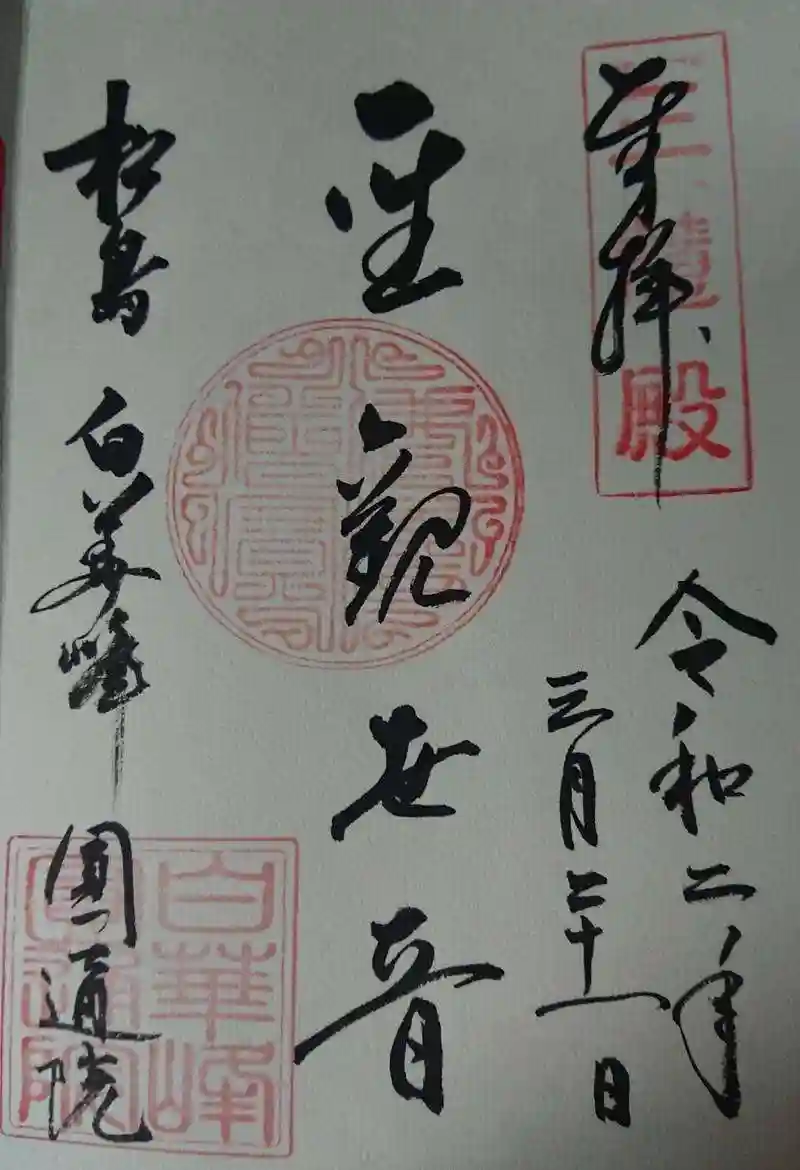 奉拝
三慧殿
令和二年
三月二十一日
聖觀世音
松島 白華峰 圓通院
白華峰
圓通院